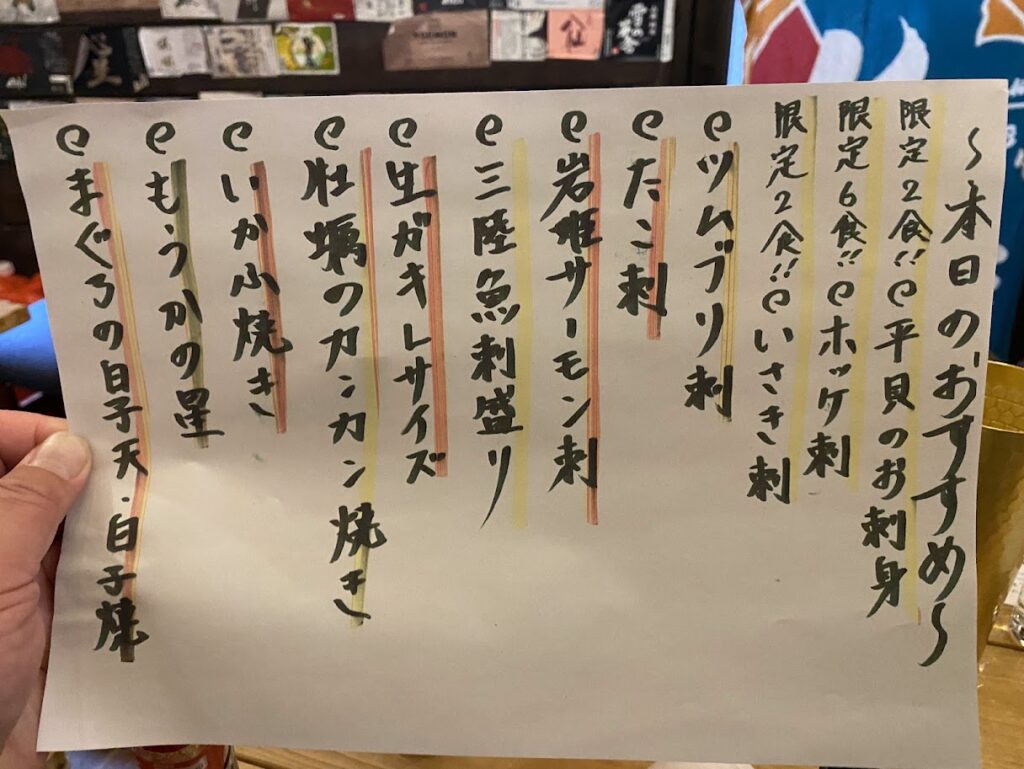 ～本日の、おすすめ～
限定2食!! 平貝のお刺身
限定6食!! ホッケ刺
限定2食!! いさき刺
ツムブリ刺
たこ刺
岩姫サーモン刺
三陸魚刺盛り
生ガキレサイズ
牡蠣のカンカン焼き
いかふ焼き
もうかの星
まぐろの白子天・白子焼